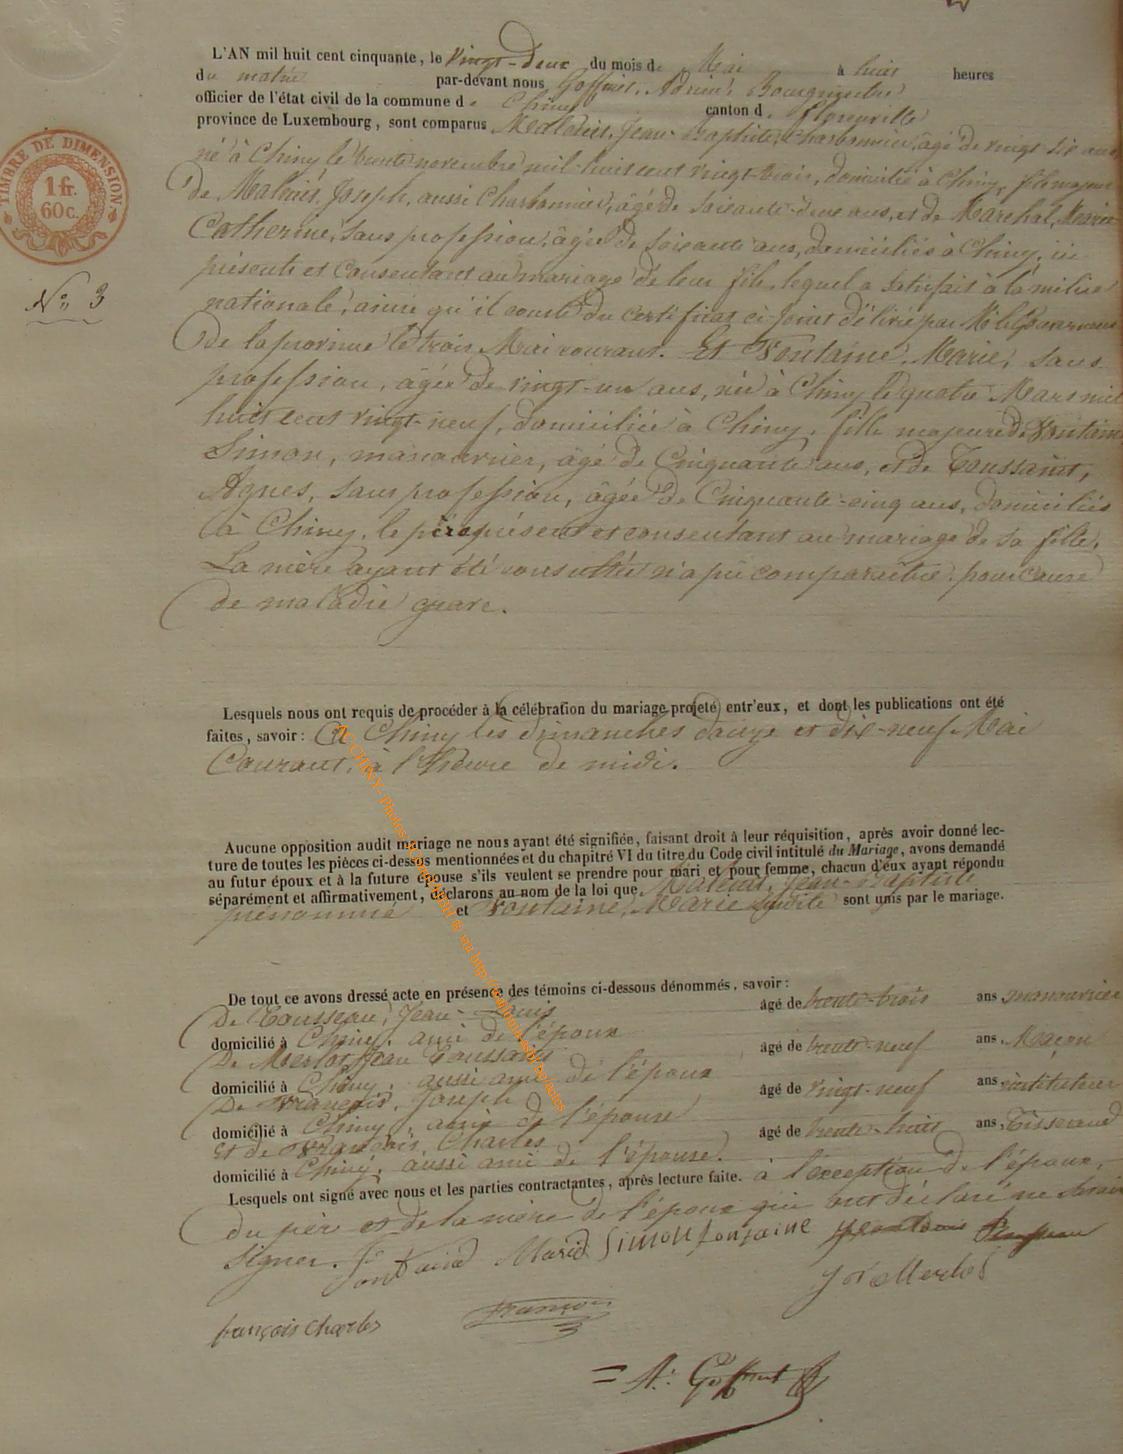 L'AN mil huit cent cinquante, le vingt-deux du mois de Mai à huit heures
du matin par-devant nous Goffinet, Adrien, Bourgmestre
officier de l'état civil de la commune de Chiny canton de Florenville
province de Luxembourg, sont comparus Maldeux, Jean-Baptiste, Charbonnier, âgé de vingt-six ans
né à Chiny le trente novembre mil-huit cent vingt-trois, domicilié à Chiny, fils majeur
de Joseph, aussi Charbonnier, âgé de soixante-deux ans, et de Marchal, Marie
Catherine, sans profession, âgée de soixante ans, domiciliés à Chiny, ici
présents et consentant au mariage de leur fils, lequel a satisfait à la milice
nationale, ainsi qu'il conste du certificat ci-joint délivré par Mr le Gouverneur
de la province le trois Mai courant. Et Fontaine, Marie, sans
profession, âgée de vingt-un ans, née à Chiny le quatre Mars mil
huit cent vingt-neuf, domiciliée à Chiny, fille majeure de Fontaine
Simon, manouvrier, âgé de cinquante ans, et de Toussaint,
Agnes, sans profession, âgée de cinquante-cinq ans, domiciliés
à Chiny, le père présent et consentant au mariage de sa fille.
La mère ayant été consultée n'a pu comparaître pour cause
de maladie grave.
TIMBRE DE DIMENSION
1 fr.
60 c.
No 3
Lesquels nous ont requis de procéder à la célébration du mariage projeté entr'eux, et dont les publications ont été
faites, savoir: A Chiny les dimanches douze et dix-neuf Mai
Courant, à l'heure de midi.
Aucune opposition audit mariage ne nous ayant été signifiée, faisant droit à leur réquisition, après avoir donné lec-
ture de toutes les pièces ci-dessus mentionnées et du chapitre VI du titre du Code civil intitulé du Mariage, avons demandé
au futur époux et à la future épouse s'ils veulent se prendre pour mari et pour femme, chacun d'eux ayant répondu
séparément et affirmativement, déclarons au nom de la loi que Jean-Baptiste
prénommé et Fontaine, Marie susdite sont unis par le mariage.
De tout ce avons dressé acte en présence des témoins ci-dessous dénommés, savoir:
De Tousseau, Jean-Louis âgé de trente-trois ans, manouvrier
domicilié à Chiny, ami de l'époux
De Merlot, Jean Toussaint âgé de trente-neuf ans, Maçon
domicilié à Chiny, aussi ami de l'époux
De François, Joseph âgé de vingt-neuf ans, instituteur
domicilié à Chiny, ami de l'épouse
Et de François, Charles âgé de trente-huit ans, Tisserand
domicilié à Chiny, aussi ami de l'épouse.
Lesquels ont signé avec nous et les parties contractantes, après lecture faite. à l'exception de l'époux,
du père et de la mère de l'époux qui ont déclaré ne savoir
signer. Fontaine Marie Simon fontaine
Merlot
françois Charles François
A: Goffinet